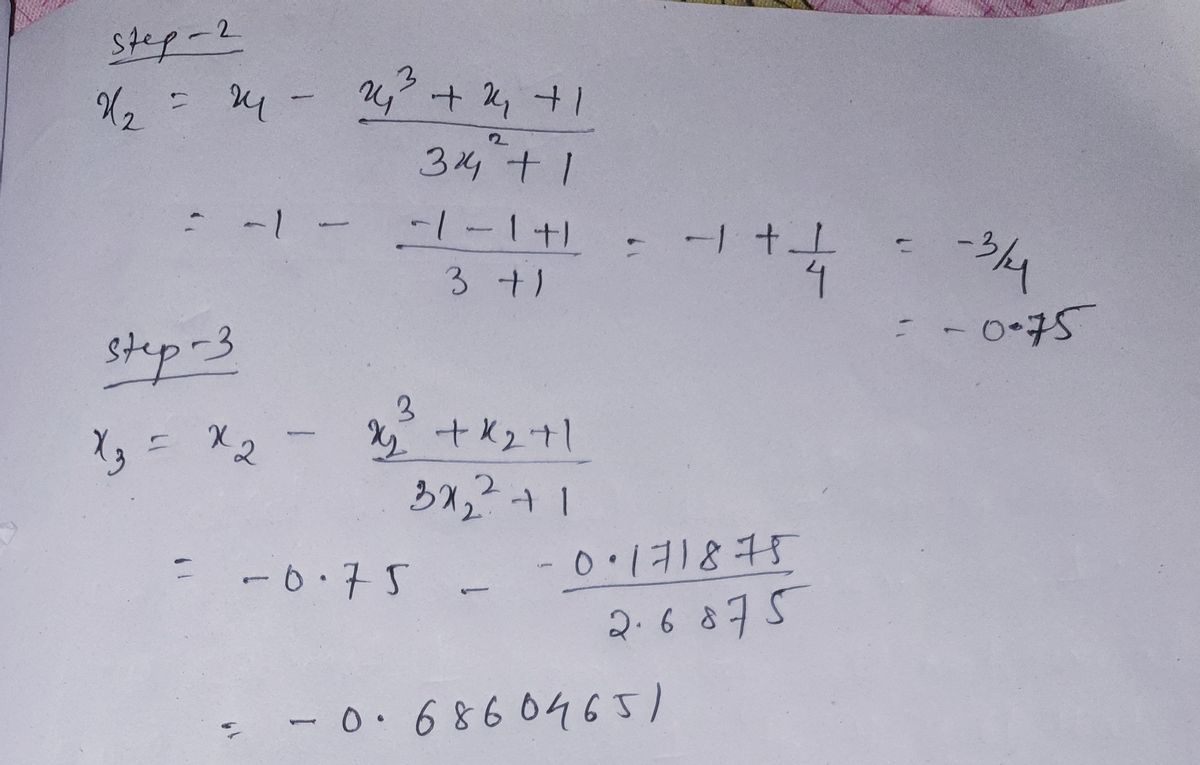 step-2
x₂ = x₁ - (x₁³ + x₁ + 1) / (3x₁² + 1)
= -1 - (-1 - 1 + 1) / (3 + 1) = -1 + 1/4 = -3/4
= -0.75
step-3
x₃ = x₂ - (x₂³ + x₂ + 1) / (3x₂² + 1)
= -0.75 - (-0.171875) / (2.6875)
= -0.68604651